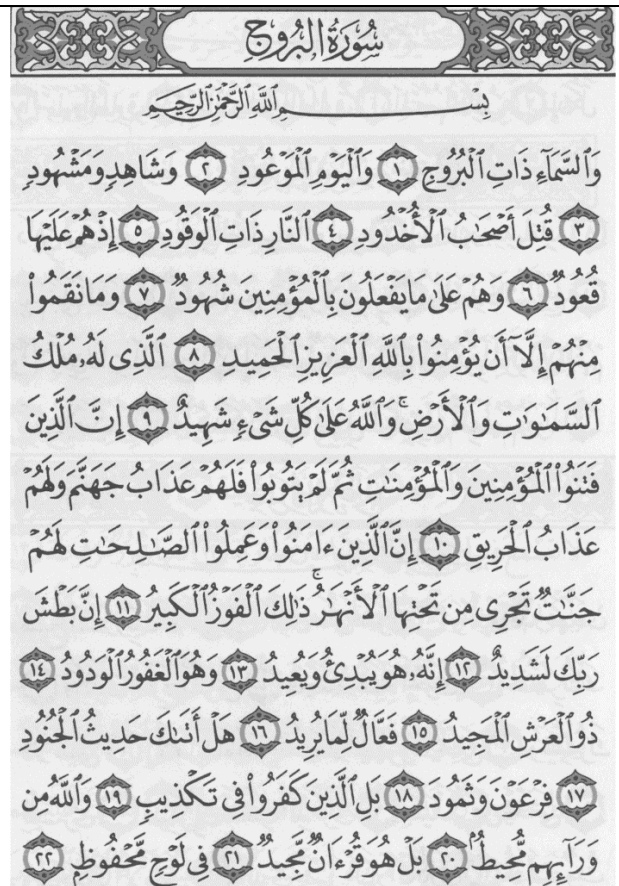 سُورَةُ البُرُوجِ
بِسْمِ ٱللَّهِ ٱلرَّحْمَٰنِ ٱلرَّحِيمِ
وَٱلسَّمَآءِ ذَاتِ ٱلْبُرُوجِ ١ وَٱلْيَوْمِ ٱلْمَوْعُودِ ٢ وَشَاهِدٍ وَمَشْهُودٍ
٣ قُتِلَ أَصْحَٰبُ ٱلْأُخْدُودِ ٤ ٱلنَّارِ ذَاتِ ٱلْوَقُودِ ٥ إِذْ هُمْ عَلَيْهَا
قُعُودٌ ٦ وَهُمْ عَلَىٰ مَا يَفْعَلُونَ بِٱلْمُؤْمِنِينَ شُهُودٌ ٧ وَمَا نَقَمُوا۟
مِنْهُمْ إِلَّآ أَن يُؤْمِنُوا۟ بِٱللَّهِ ٱلْعَزِيزِ ٱلْحَمِيدِ ٨ ٱلَّذِى لَهُۥ مُلْكُ
ٱلسَّمَٰوَٰتِ وَٱلْأَرْضِ ۚ وَٱللَّهُ عَلَىٰ كُلِّ شَىْءٍ شَهِيدٌ ٩ إِنَّ ٱلَّذِينَ
فَتَنُوا۟ ٱلْمُؤْمِنِينَ وَٱلْمُؤْمِنَٰتِ ثُمَّ لَمْ يَتُوبُوا۟ فَلَهُمْ عَذَابُ جَهَنَّمَ وَلَهُمْ
عَذَابُ ٱلْحَرِيقِ ١٠ إِنَّ ٱلَّذِينَ ءَامَنُوا۟ وَعَمِلُوا۟ ٱلصَّٰلِحَٰتِ لَهُمْ
جَنَّٰتٌ تَجْرِى مِن تَحْتِهَا ٱلْأَنْهَٰرُ ۚ ذَٰلِكَ ٱلْفَوْزُ ٱلْكَبِيرُ ١١ إِنَّ بَطْشَ
رَبِّكَ لَشَدِيدٌ ١٢ إِنَّهُۥ هُوَ يُبْدِئُ وَيُعِيدُ ١٣ وَهُوَ ٱلْغَفُورُ ٱلْوَدُودُ ١٤
ذُو ٱلْعَرْشِ ٱلْمَجِيدُ ١٥ فَعَّالٌ لِّمَا يُرِيدُ ١٦ هَلْ أَتَىٰكَ حَدِيثُ ٱلْجُنُودِ
١٧ فِرْعَوْنَ وَثَمُودَ ١٨ بَلِ ٱلَّذِينَ كَفَرُوا۟ فِى تَكْذِيبٍ ١٩ وَٱللَّهُ مِن
وَرَآئِهِم مُّحِيطٌۢ ٢٠ بَلْ هُوَ قُرْءَانٌ مَّجِيدٌ ٢١ فِى لَوْحٍ مَّحْفُوظٍۭ ٢٢